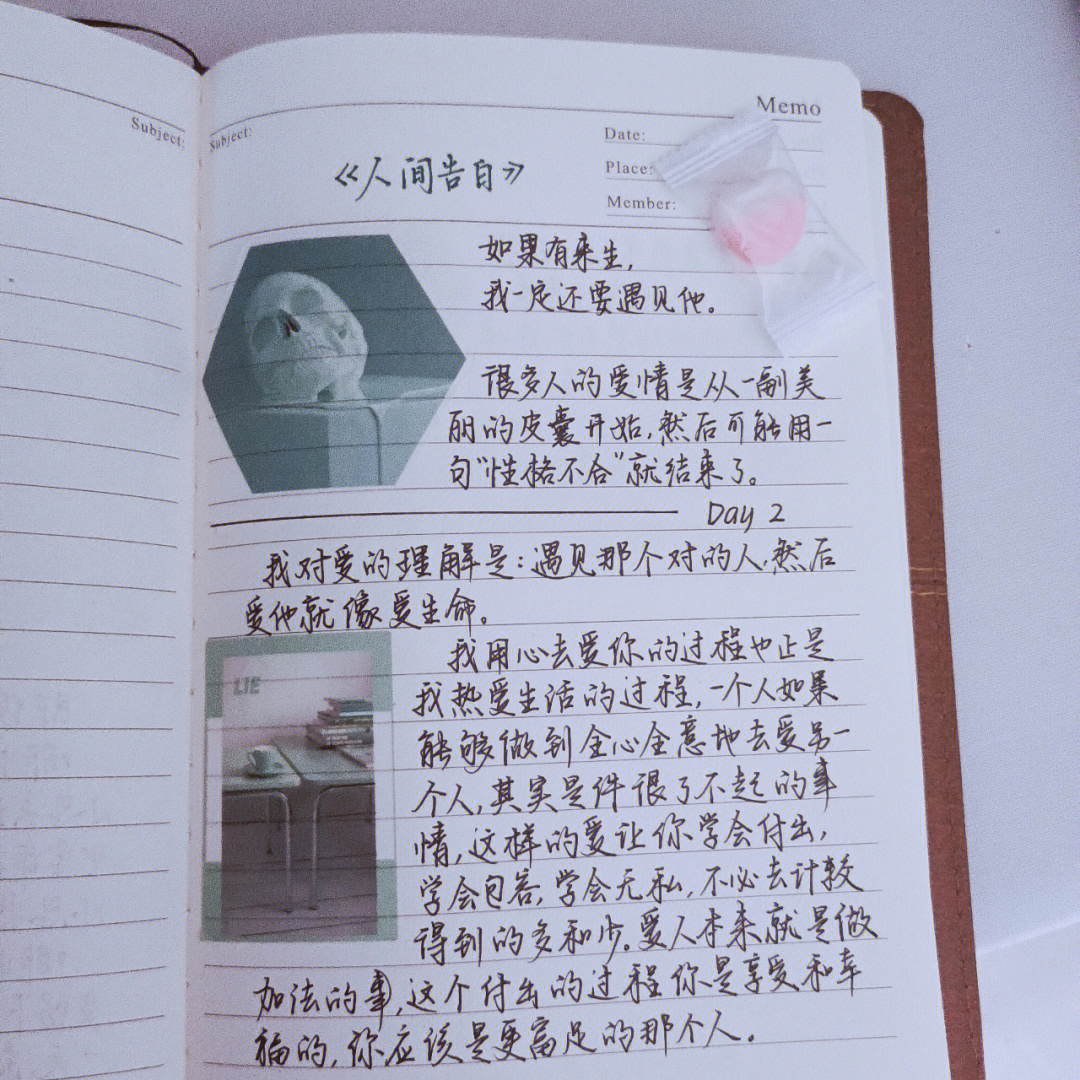 Memo
Subject:
Subject:
Date:
Place:
Member:
《人间告白》
如果有来生,
我一定还要遇见他。
很多人的爱情是从一副美
丽的皮囊开始,然后可能用一
句“性格不合”就结束了。
Day 2
我对爱的理解是:遇见那个对的人,然后
爱他就像爱生命。
LIE
我用心去爱你的过程也正是
我热爱生活的过程,一个人如果
能够做到全心全意地去爱另一
个人,其实是件很了不起的事
情,这样的爱让你学会付出,
学会包容,学会无私,不必去计较
得到的多和少。爱人本来就是做
加法的事,这个付出的过程你是享受和幸
福的,你应该是更富足的那个人。